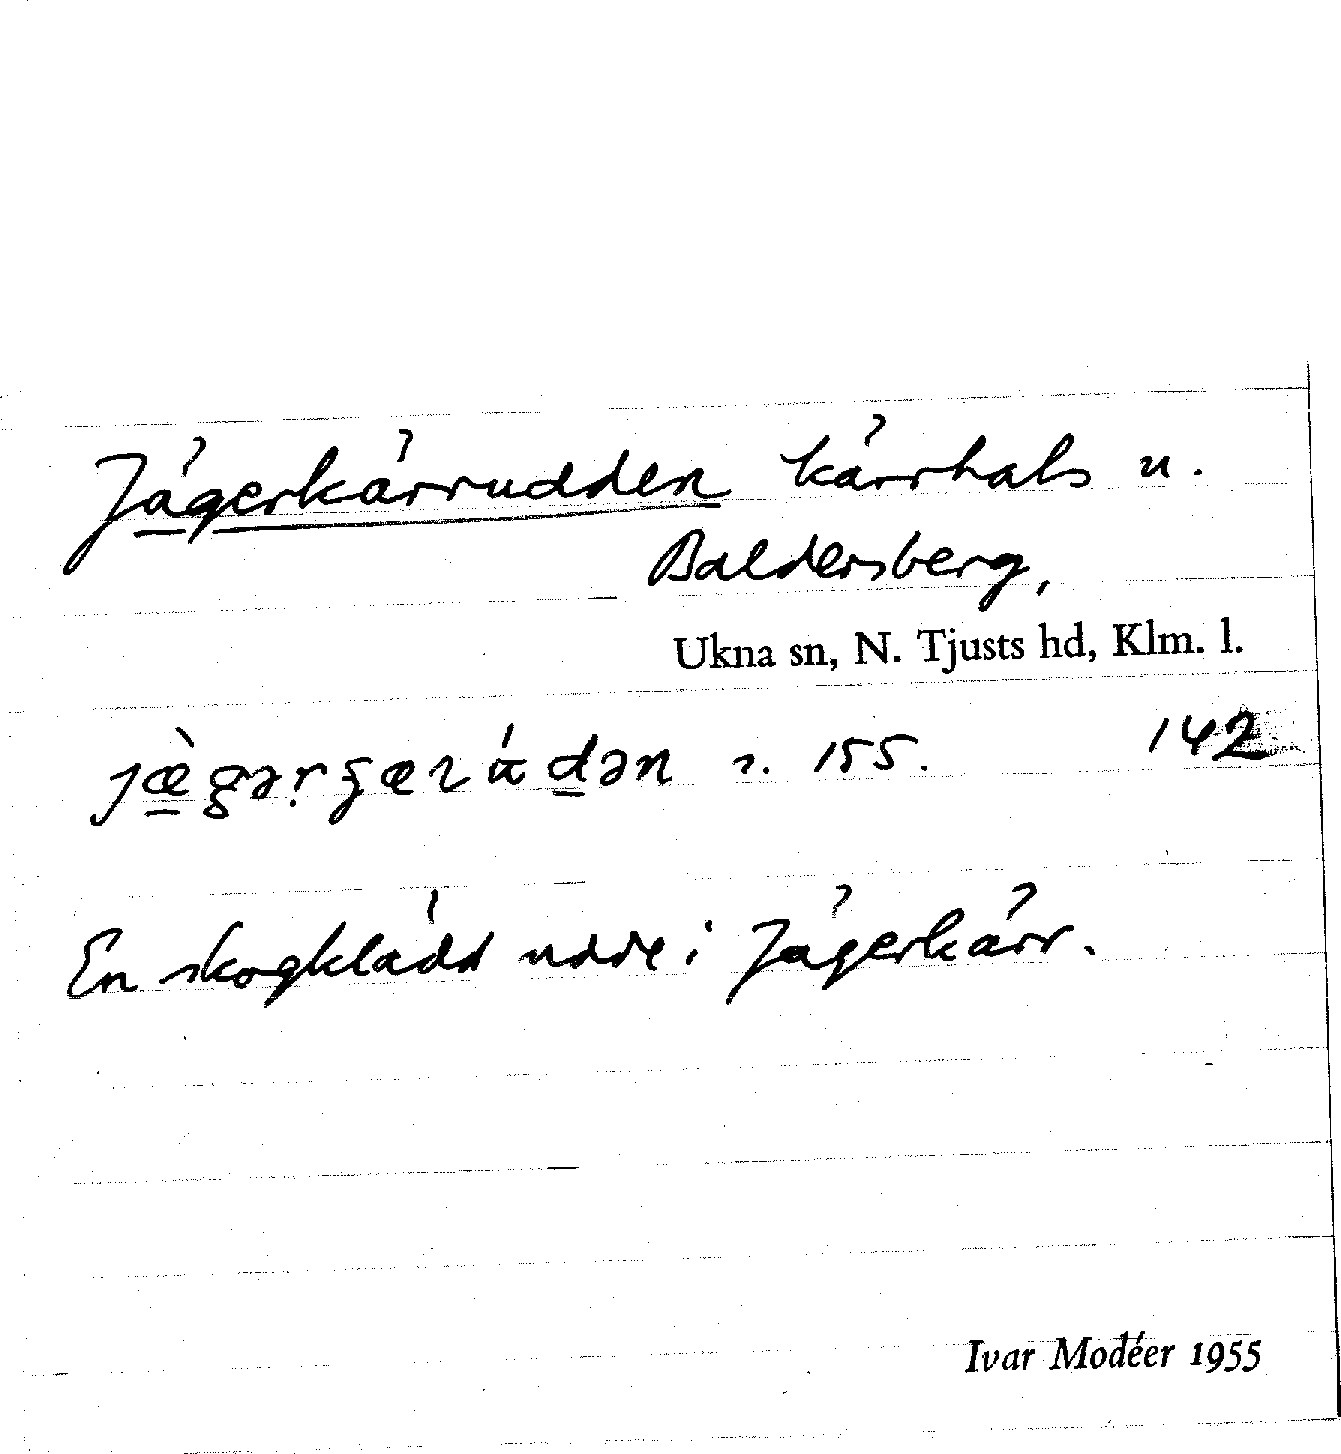 Jägerkärrudden kärrhals u.
Baldersberg,
Ukna sn, N. Tjusts hd, Klm. l.
155. 142
En skogklädd udde i Jägerkärr.
Ivar Modéer 1955